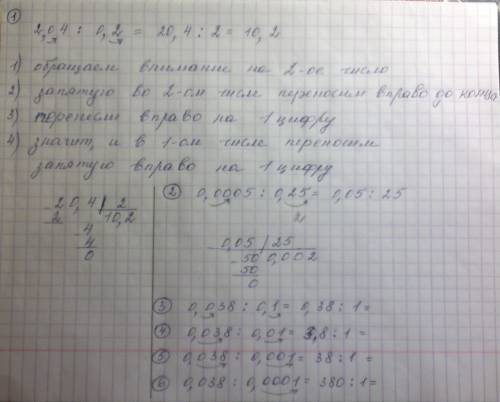 ①
2,04 : 0,2 = 20,4 : 2 = 10,2
1) обращаем внимание на 2-ое число
2) запятую во 2-ом числе переносим вправо до конца
3) перенесли вправо на 1 цифру
4) значит, и в 1-ом числе переносим
запятую вправо на 1 цифру
20,4 | 2
2 | 10,2
4
4
0
② 0,0005 : 0,25 = 0,05 : 25
0,05 | 25
50 | 0,002
50
0
③ 0,038 : 0,1 = 0,38 : 1 =
④ 0,038 : 0,01 = 3,8 : 1 =
⑤ 0,038 : 0,001 = 38 : 1 =
⑥ 0,038 : 0,0001 = 380 : 1 =